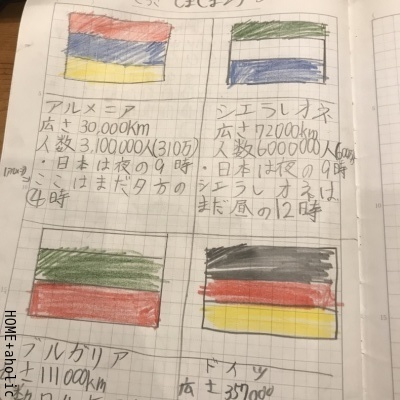 アルメニア
広さ 30,000km
人数 3,100,000人(310万)
・日本は夜の9時
ここはまだ夕方の
④時
シエラレオネ
広さ 72000km
人数 6000000人
・日本は夜の9時
シエラレオネは
まだ昼の12時
ブルガリア
さ 111000km
ドイツ
広さ 357000
HOME+aholic